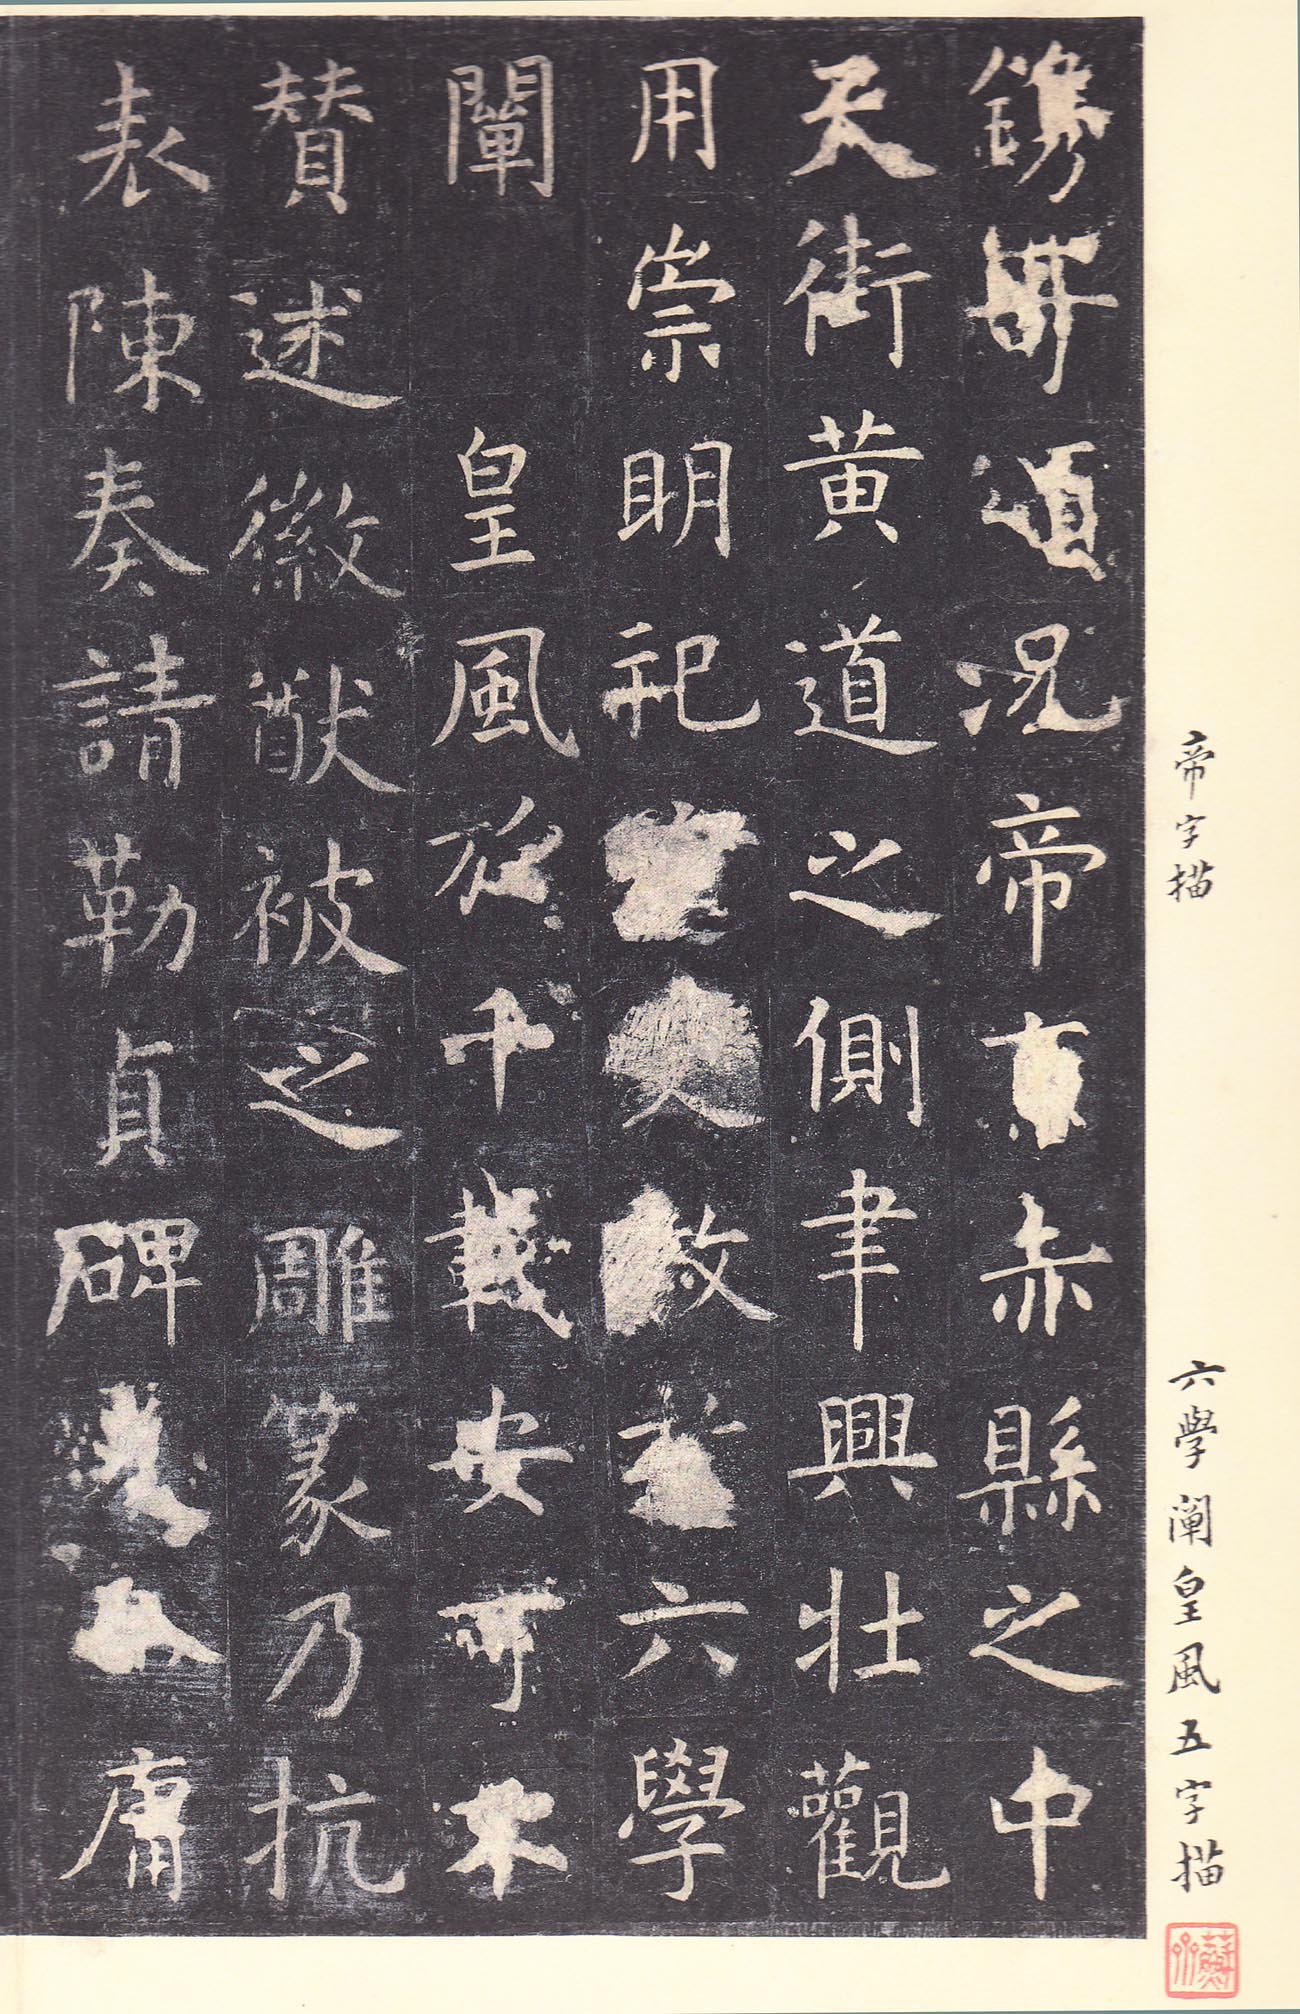 鐫哥頌況帝京赤縣之中
天街黃道之側聿興壯觀
用崇明祀宣文教於六學
闡皇風於千載安可不
贊述徽猷被之雕篆乃抗
表陳奏請勒貞碑爰命庸
帝字描
六學闡皇風五字描